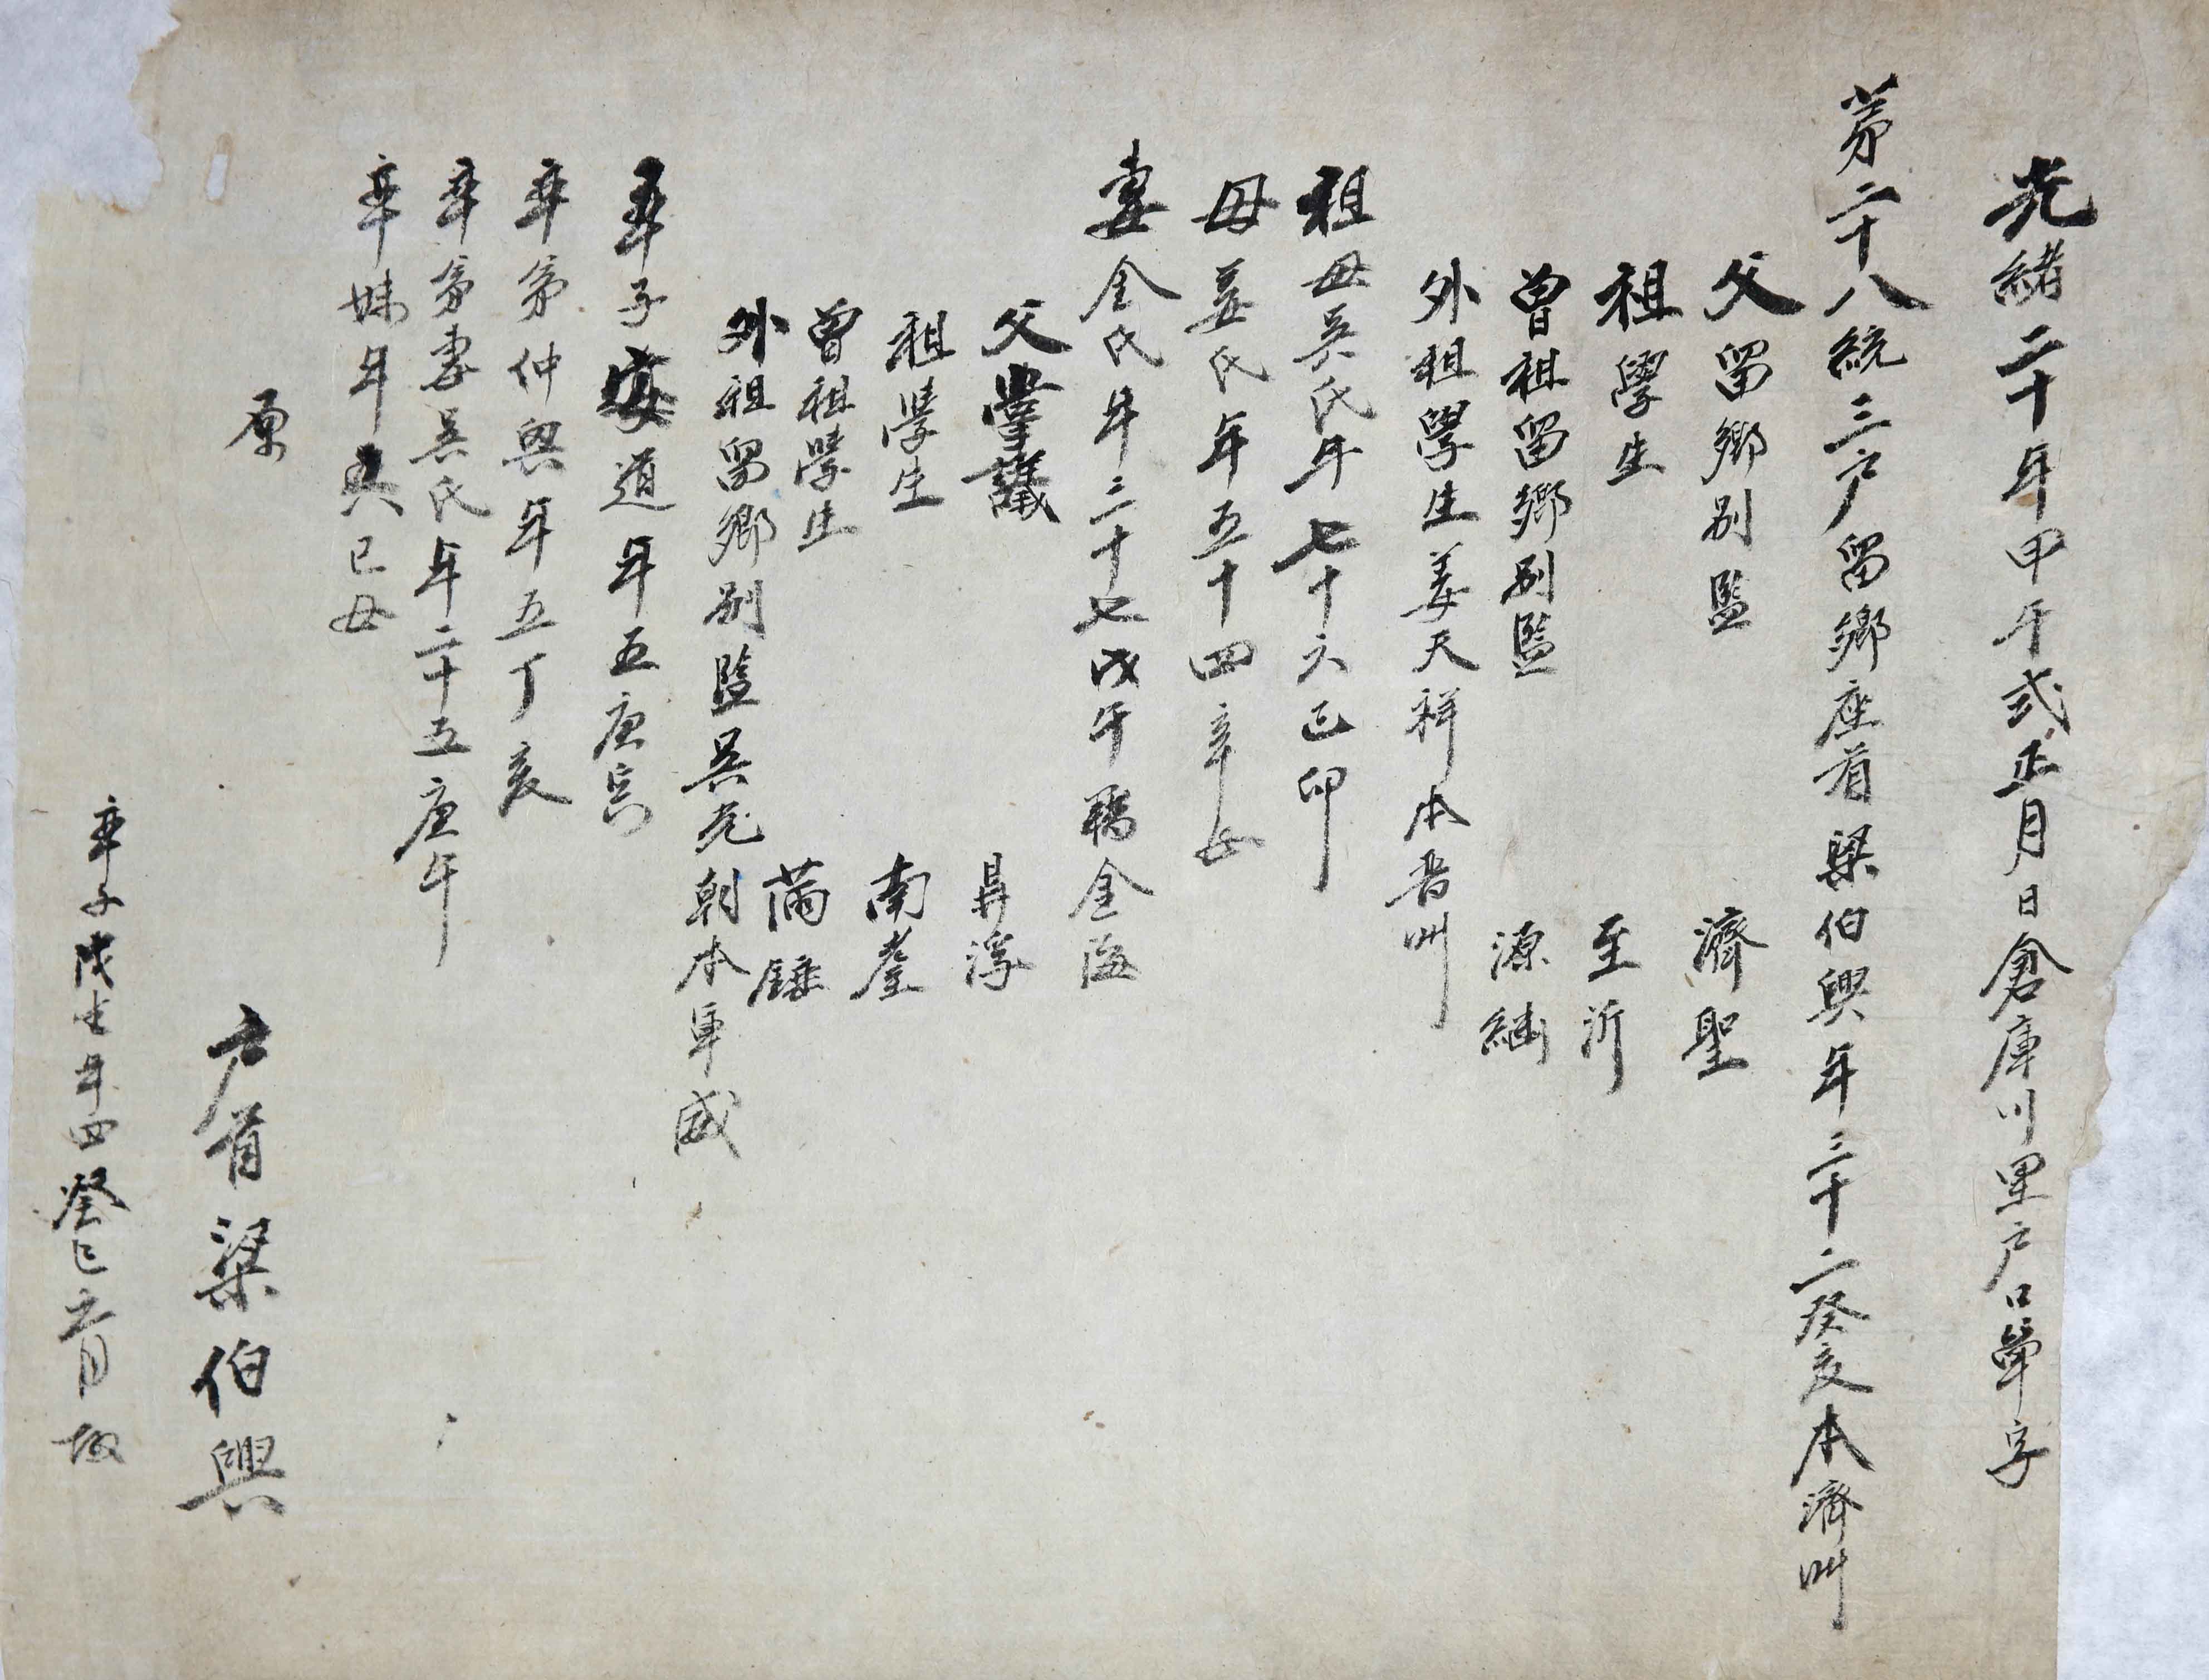 光緒二十年甲午式正月日倉庫川里戶口單字
第二十八統三戶留鄉座首梁伯興年三十二癸亥本濟州
父留鄉別監濟聖
祖學生至沂
曾祖留鄉別監源
外祖學生姜天祥本晋州
祖母吳氏年七十六己卯
母姜氏年五十四辛丑
妻金氏年三十七戊午籍金海
父掌議昇淳
祖學生南
曾祖學生
外祖留鄉別監吳充朝本軍威
率子道年五庚寅
率弟仲興年五丁亥
率弟妻吳氏年二十五庚午
率妹年已母
原
戶首梁伯興
率子戊生年四癸巳六月故